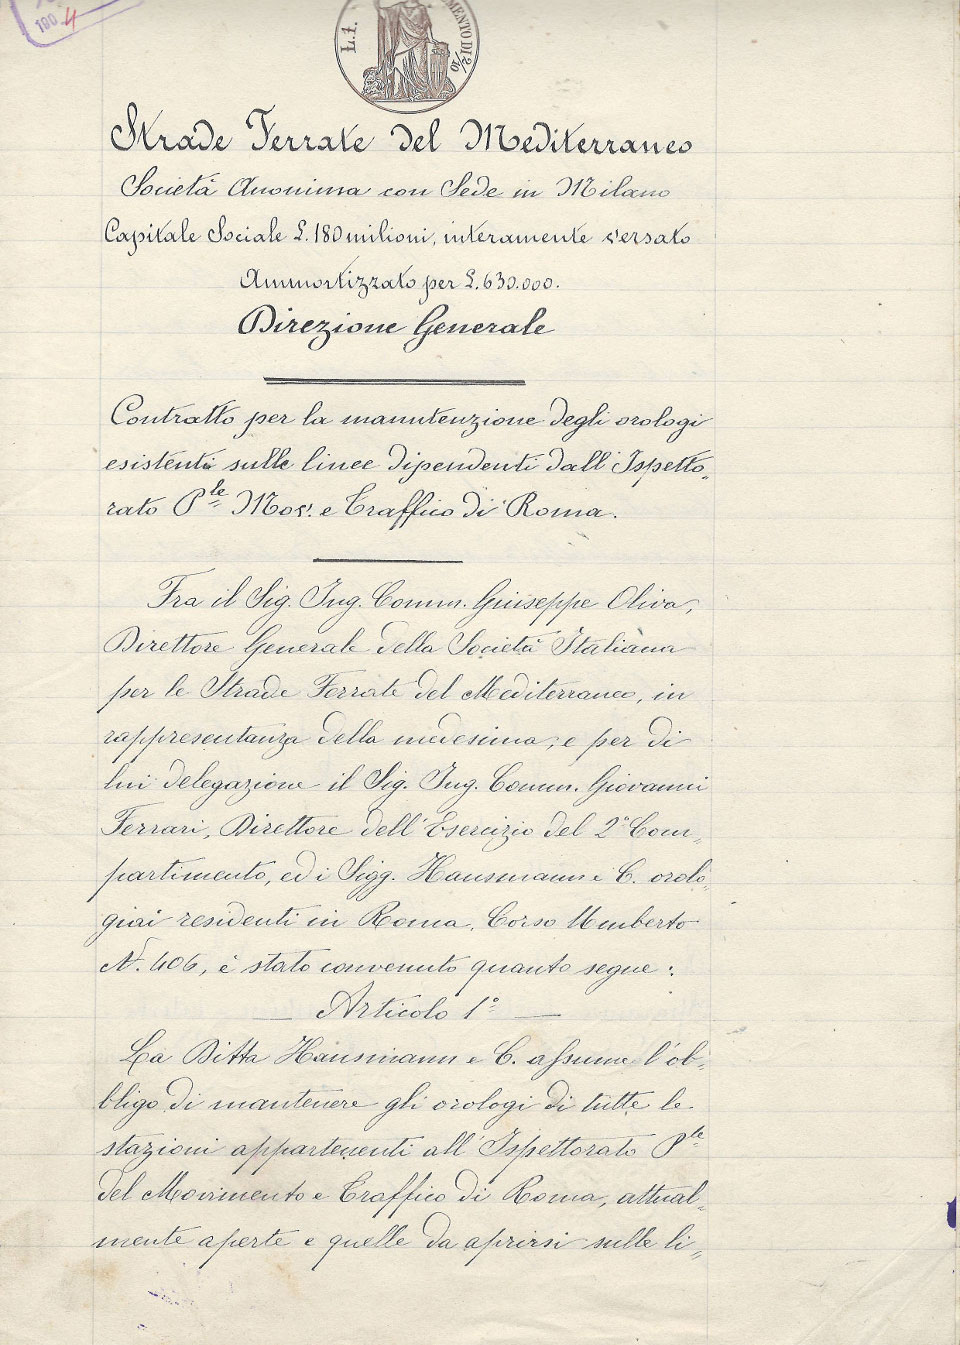 190 4
L. 1.
MENTO DI 2/10
Strade Ferrate del Mediterraneo
Società Anonima con Sede in Milano
Capitale Sociale £. 180 milioni, interamente versato
Ammortizzato per £. 630.000.
Direzione Generale
Contratto per la manutenzione degli orologi
esistenti sulle linee dipendenti dall'Ispetto„
rato P.le Mov. e Traffico di Roma.
Fra il Sig. Ing. Comm. Giuseppe Oliva,
Direttore Generale della Società Italiana
per le Strade Ferrate del Mediterraneo, in
rappresentanza della medesima, e per di
lui delegazione il Sig. Ing. Comm. Giovanni
Ferrari, Direttore dell'Esercizio del 2° Com„
partimento, ed i Sigg. Hausmann e C. orolo„
giai residenti in Roma, Corso Umberto
N. 406, è stato convenuto quanto segue:
Articolo 1°
La Ditta Hausmann e C. assume l'ob„
bligo di mantenere gli orologi di tutte le
stazioni appartenenti all'Ispettorato P.le
del Movimento e Traffico di Roma, attual„
mente aperte e quelle da aprirsi sulle li„